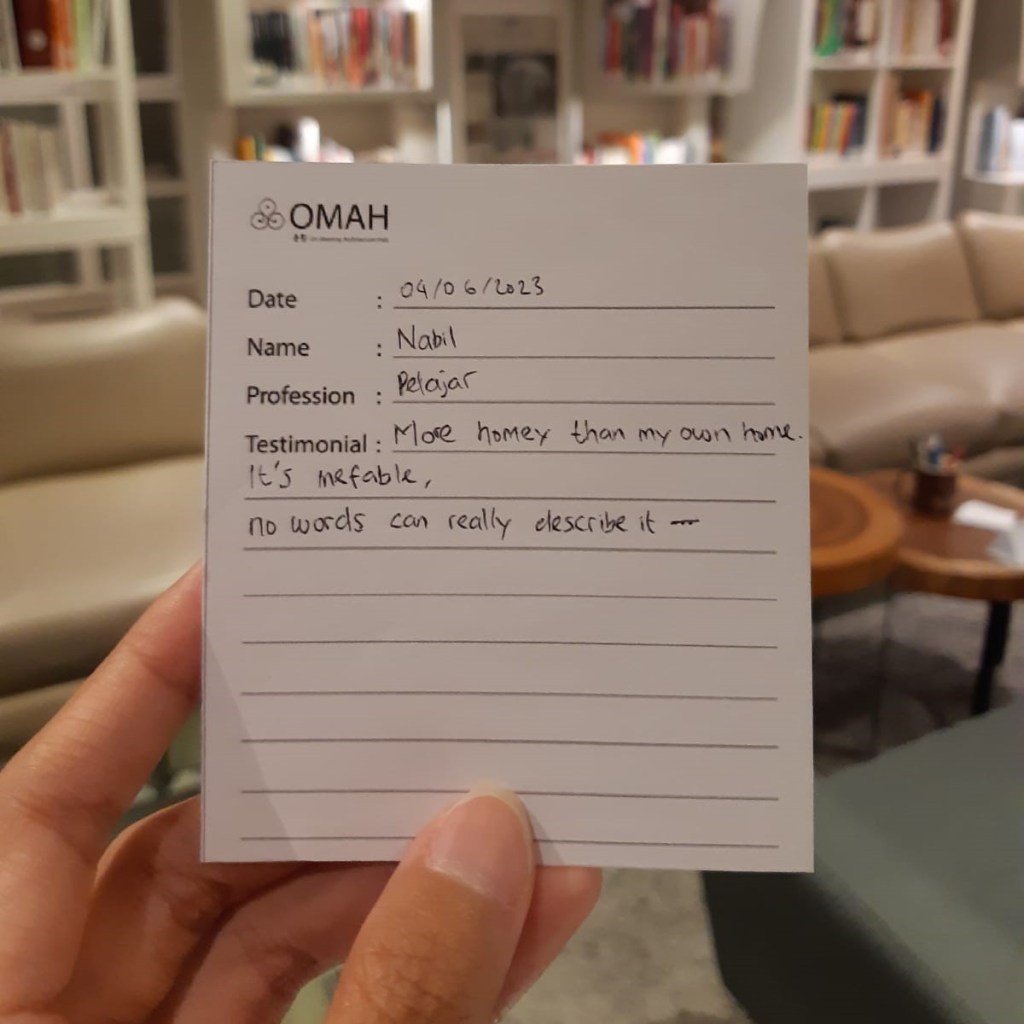 OMAH
Date : 04/06/2023
Name : Nabil
Profession : Pelajar
Testimonial : More homey than my own home.
It's inefable,
no words can really describe it —